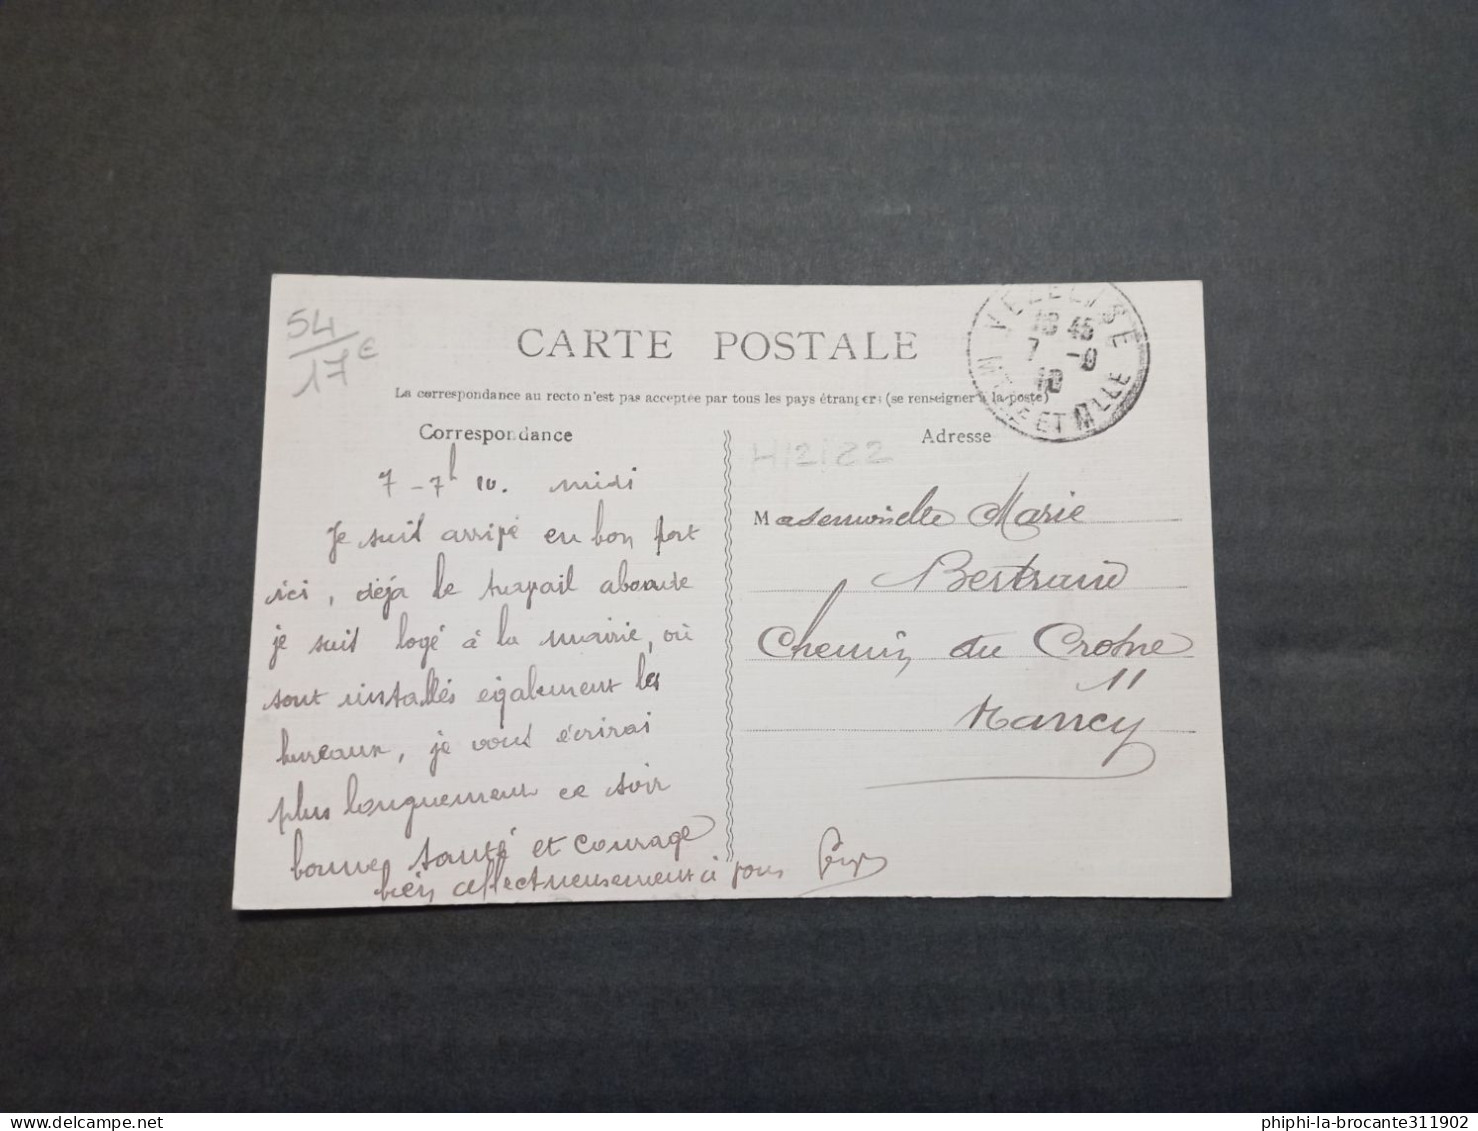 54
17€
CARTE POSTALE
La correspondance au recto n'est pas acceptée par tous les pays étrangers (se renseigner à la poste)
VEZELISE
18 45
7
10
MTHE ET MLLE
Correspondance
7 - 7h 10. midi
Je suis arrivé en bon port
ici, déjà le travail abonde
je suis logé à la mairie, où
sont installés également les
bureaux, je vous écrirai
plus longuement ce soir
bonne santé et courage
bien affectueusement à vous
4/2/22
Adresse
Mademoiselle Marie
Bertrand
Chemin du Crosne
11
Nancy
phiphi-la-brocante311902